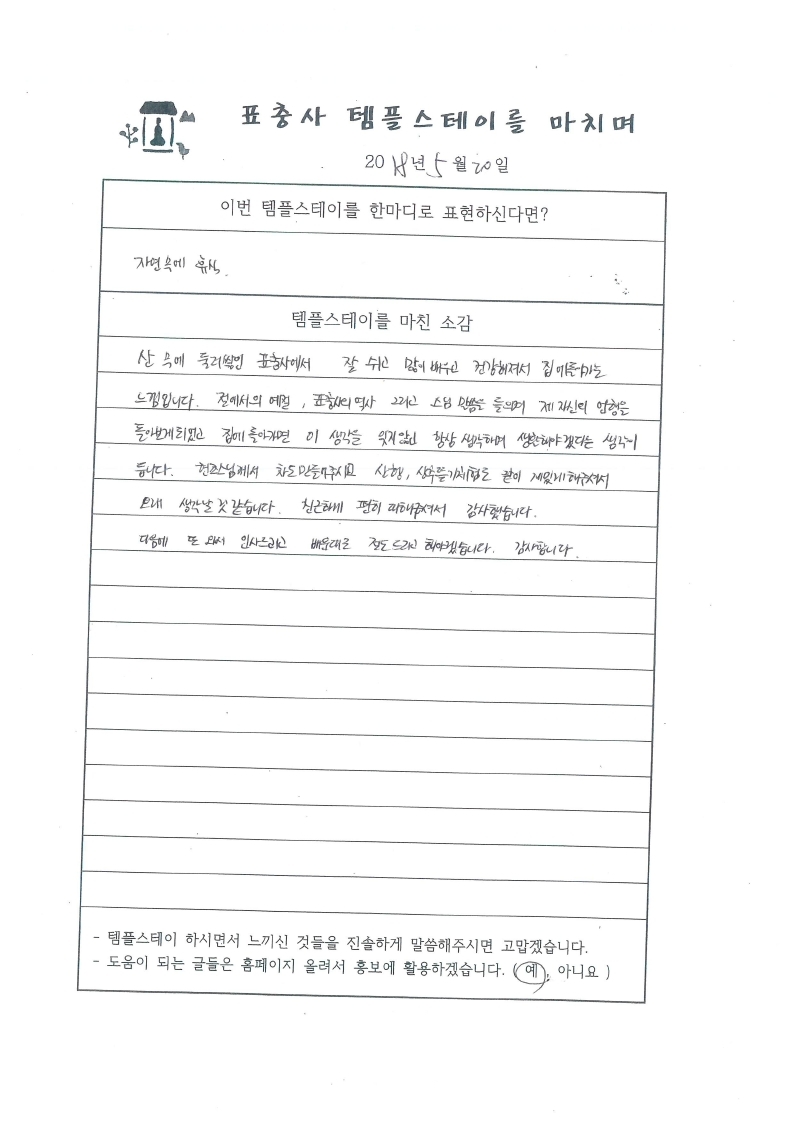 표충사 템플스테이를 마치며
2018년 5월 20일
이번 템플스테이를 한마디로 표현하신다면?
자연속에 휴식.
템플스테이를 마친 소감
산 속에 둘러쌓인 표충사에서 잘 쉬고 많이 배우고 건강해져서 집에
느낌입니다. 절에서의 예절, 표충사의 역사 그리고 스님 말씀을 들으며 제 자신의
돌아보게되었고 집에 돌아가면 이 생각을 잊지않고 항상 생각하며 생활해야겠다는 생각이
듭니다. 스님께서 차도 만들어주시고 산행, 같이 재밌게 해주셔서
오래 생각날 것 같습니다. 친근하게 편히 대해주셔서 감사했습니다.
다음에 또 와서 인사드리고 배운대로 절도 드리고 해야겠습니다. 감사합니다.
- 템플스테이 하시면서 느끼신 것들을 진솔하게 말씀해주시면 고맙겠습니다.
- 도움이 되는 글들은 홈페이지 올려서 홍보에 활용하겠습니다. ( 예, 아니요 )